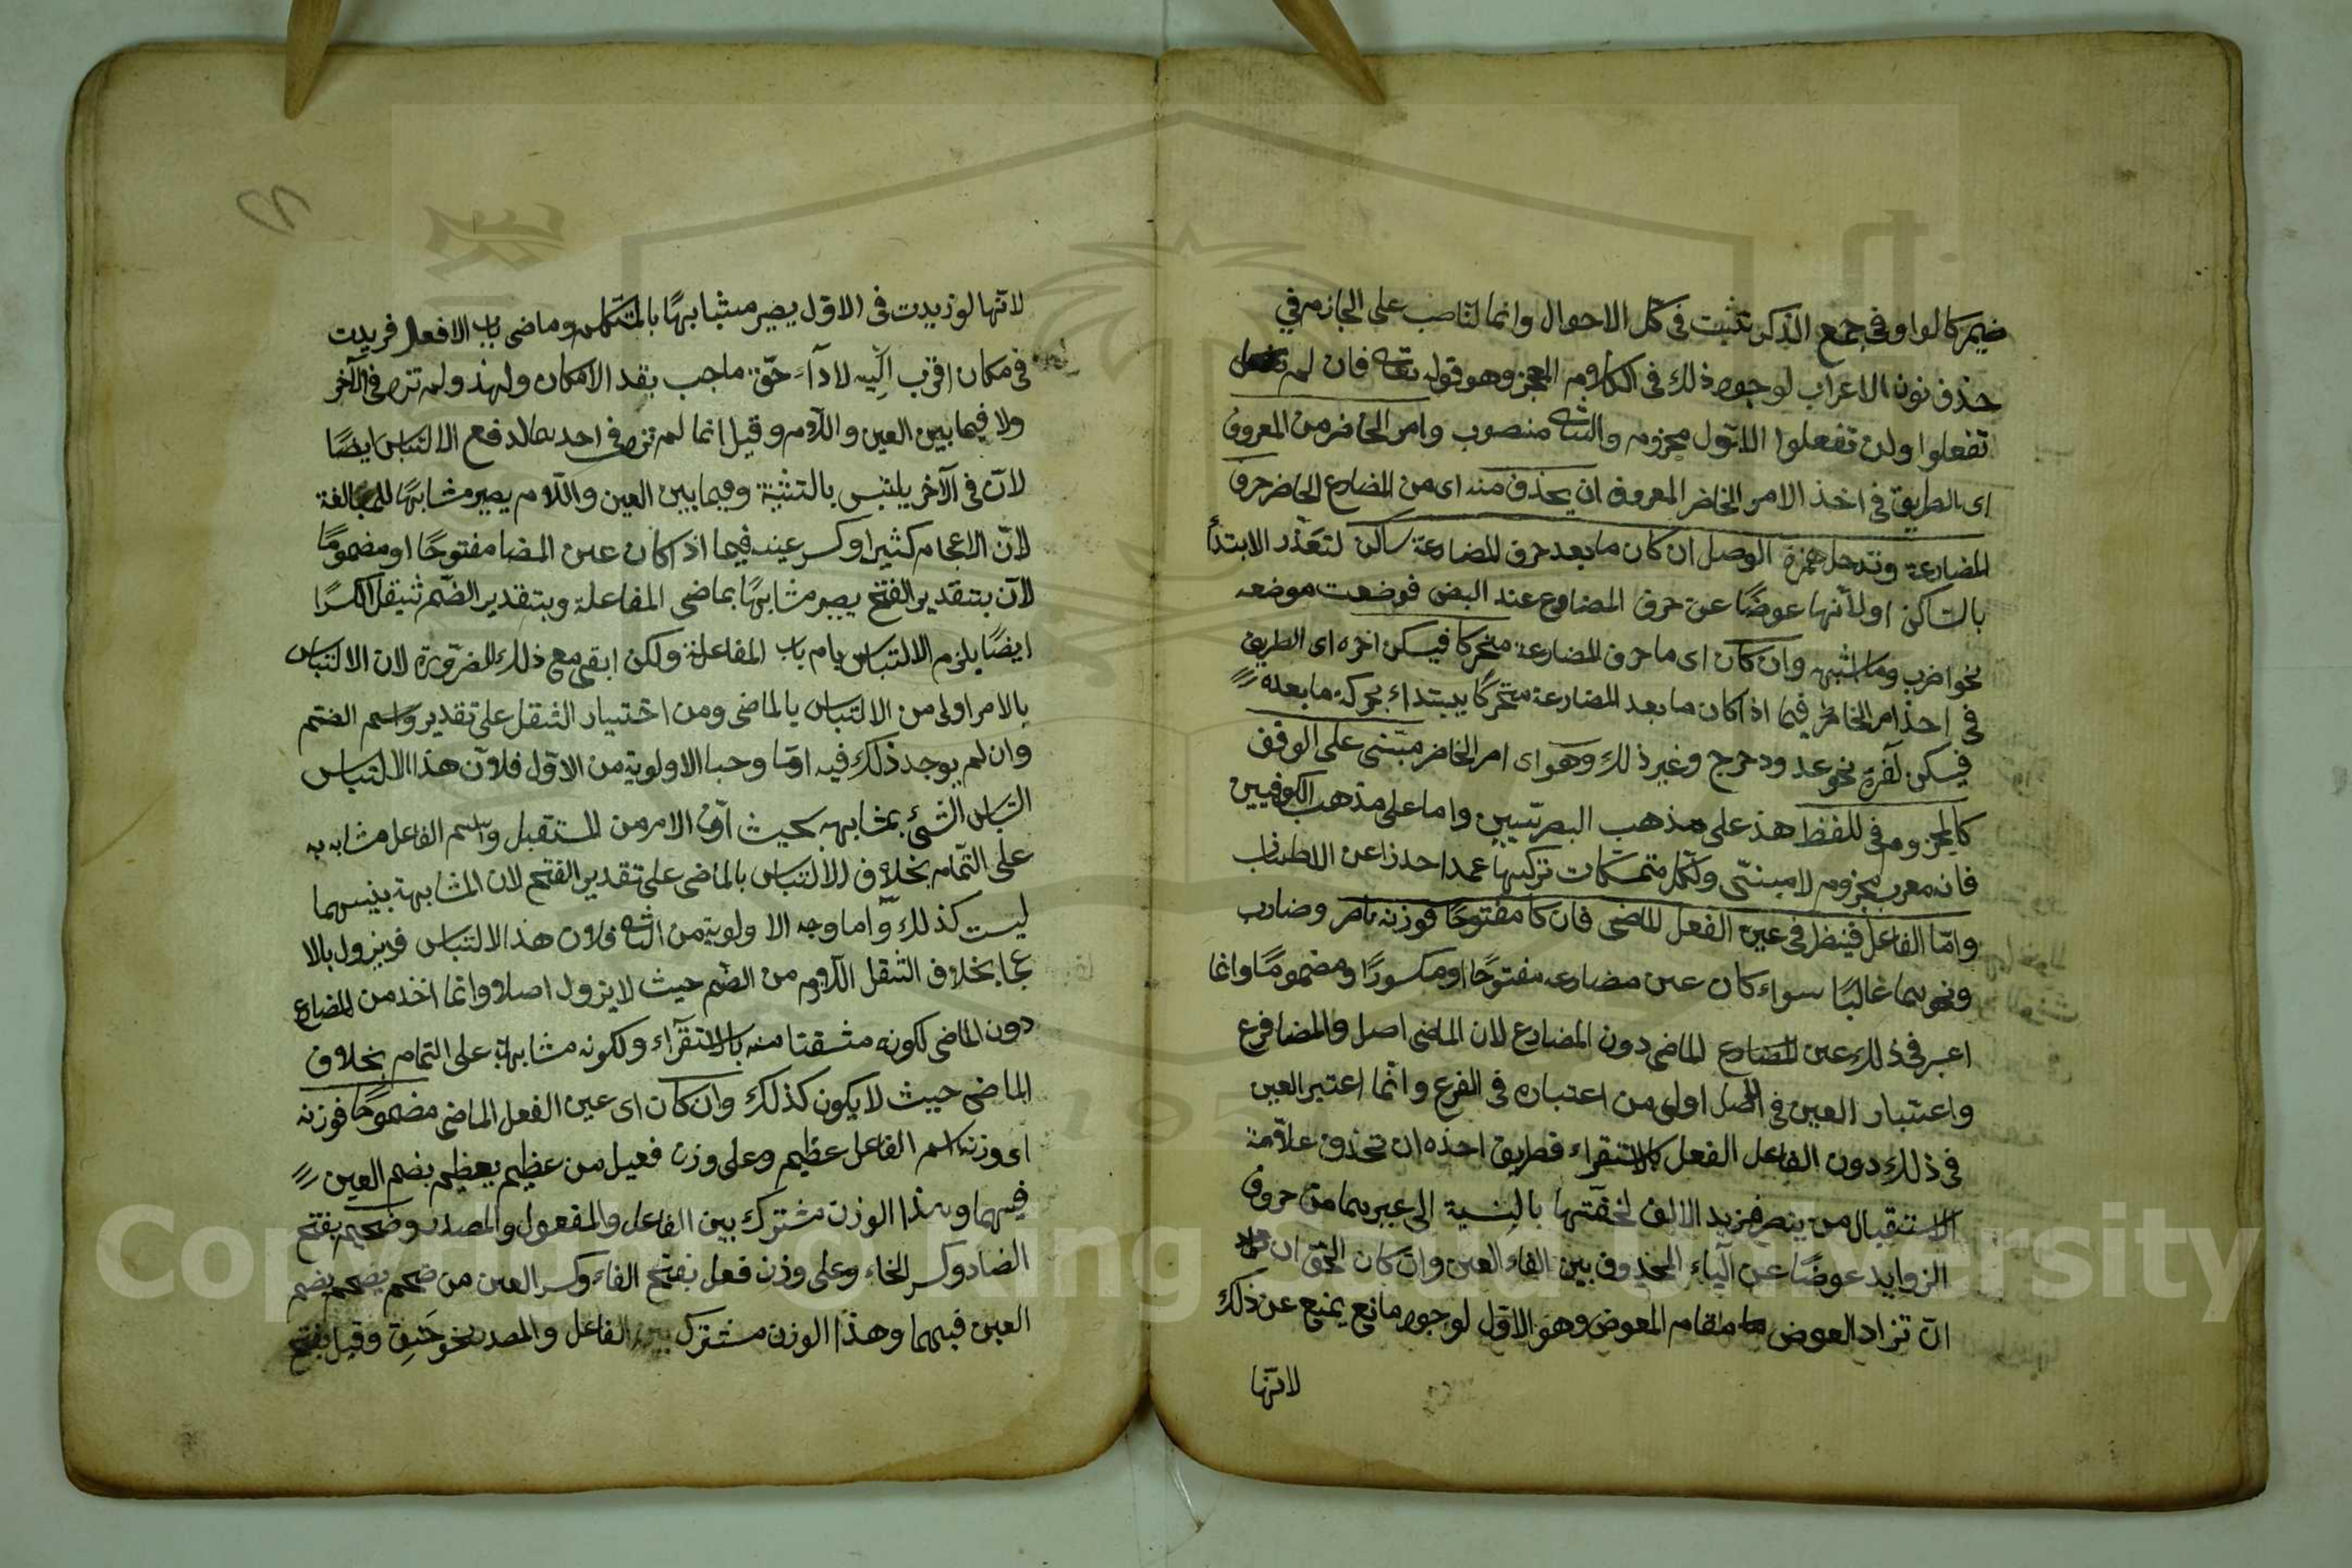 ضمير كالواو في جمع المذكر تثبت في كل الاحوال وانما لناصب على الجازم في
حذف نون الاعراب لوجود ذلك في الكلام المعجز وهو قوله تعالى فان لم
تفعلوا ولن تفعلوا الاول مجزوم والثانى منصوب وامر الحاضر من المعروف
اى الطريق في اخذ الامر الحاضر المعروف ان يحذف منه اى من المضارع الحاضر حرف
المضارعة وتدخل همزة الوصل ان كان ما بعد حرف المضارعة ساكن لتعذر الابتدأ
بالساكن اولأنها عوضًا عن حرف المضارع عند البعض فوضعت موضعه
نحو اضرب وما اشبهه وان كان اى ما حرف المضارعة متحركا فيسكن اخره اى الطريق
في اخذ امر الحاضر فيما اذا كان ما بعد المضارعة متحركًا يبتداء بحركة ما بعده
فيسكن آخره نحو عد ودحرج وغير ذلك وهو اى امر الحاضر مبنى على الوقف
كالمجزوم في اللفظ هذ على مذهب البصريين واما على مذهب الكوفيين
فانه معرب مجزوم لا مبنى ولكل متمسكات تركيبها عمدا حذرا عن الاطناب
وامّا الفاعل فينظر في عين الفعل الماضى فان كا مفتوحًا فوزنه ناصر وضارب
ونحوهما غالبًا سواء كان عين مضارعه مفتوحًا او مكسورًا ومضمومًا وانما
اعبر في ذلك عين المضارع الماضى دون المضارع لان الماضى اصل والمضا فرع
واعتبار العين في الاصل اولى من اعتباره في الفرع وانما اعتبر العين
في ذلك دون الفاعل الفعل كالاستقراء فطريق اخذه ان تحذف علامة
الاستقبال من ينصر فزيد الالف لخفتها بالنسبة الى غيرهما من حروف
الزوايد عوضًا عن الياء المحذوف بين الفاء العين وان كان الحق ان
انّ تزاد العوض مقام المعوض وهو الاول لوجود مانع يمنع عن ذلك
لانها
لانها لو زيدت في الاول يصير مشابهًا بالمتكلم وماضى باب الافعل فريدت
في مكان اقرب اليه لاداء حق ما جب بقد الامكان ولهذ ولم تزد في الآخر
ولا فيما بين العين واللام وقيل انما لم تزد في احدهما لدفع الالتباس ايضًا
لان في الآخر يلتبس بالتثنية وفيما بين العين واللام يصير مشابهًا للمبالغة
لان الاعجام كثيرا وكسر عينه فيما اذ اكان عين المضا مفتوحًا او مضمومًا
لان بتقدير الفتح يصير مشابهًا بماضى المفاعلة وبتقدير الضم ثقيل الكسرًا
ايضًا يلزم الالتباس بامر باب المفاعلة ولكن ابقى مع ذلك للضرورة لان الالتباس
بالامر اولى من الالتباس بالماضى ومن اختيار الثقل على تقدير واسم الضم
وان لم يوجد ذلك فيه امّا وجها الاولوية من الاول فلان هذا الالتباس
التباس الشئ بمشابهه بحيث انّ الامر من المستقبل واسم الفاعل مشابه به
على التمام بخلاف الالتباس بالماضى على تقدير الفتح لان المشابهة بينهما
ليست كذلك واما وجه الا ولوية من الثانى فلان هذ الالتباس فديزول بالا
عجا بخلاف الثقل اللازم من الضم حيث لا يزول اصلا وانما اخذ من المضارع
دون الماضى لكونه مشتقتا منه بالاستقرآء ولكونه مشابهة على التمام بخلاف
الماضى حيث لا يكون كذلك وان كان اى عين الفعل الماضى مضمومًا فوزنه
اى وزنه اسم الفاعل عظيم وعلى وزن فعيل من عظيم يعظيم بضم العين
فيهما وهذا الوزن مشترك بين الفاعل والمفعول والمصدر وضخيم بفتح
الضاد وكسر الخاء وعلى وزن فعل بفتح الفاء وكسر العين من ضخم يضخم بضم
العين فيهما وهذا الوزن مشترك بين الفاعل والمصدر نحو خنق وقيل بفتح
Copyright © King Saud University